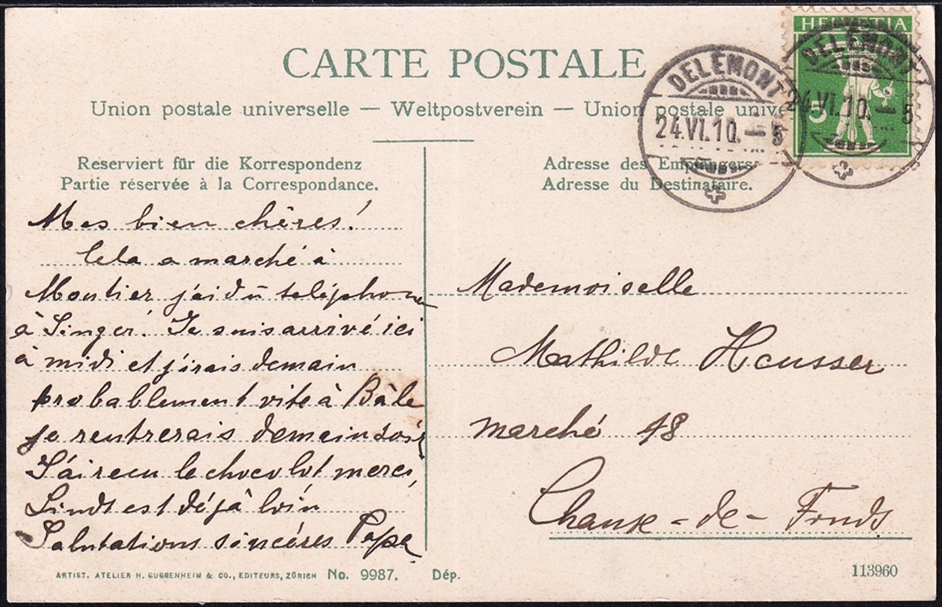 CARTE POSTALE
Union postale universelle — Weltpostverein — Union postale unive
HELVETIA
5
DELÉMONT
24.VI.10.–5
DELÉMONT
24.VI.10.–5
Reserviert für die Korrespondenz
Partie réservée à la Correspondance.
Adresse des Empfängers.
Adresse du Destinataire.
Mes bien chères!
Cela a marché à
Moutier j'ai dû teléphoner
à Singer! Je suis arrivé ici
à midi et j'irais demain
probablement vite à Bâle
je rentrerais demain soir
J'ai recu le chocolot merci,
Lindt est déjà loin
Salutations sincères Papa
Mademoiselle
Mathilde Heusser
marché 48
Chaux-de-Fonds
ARTIST. ATELIER H. GUGGENHEIM & CO., EDITEURS, ZÜRICH No. 9987. Dép.
113960